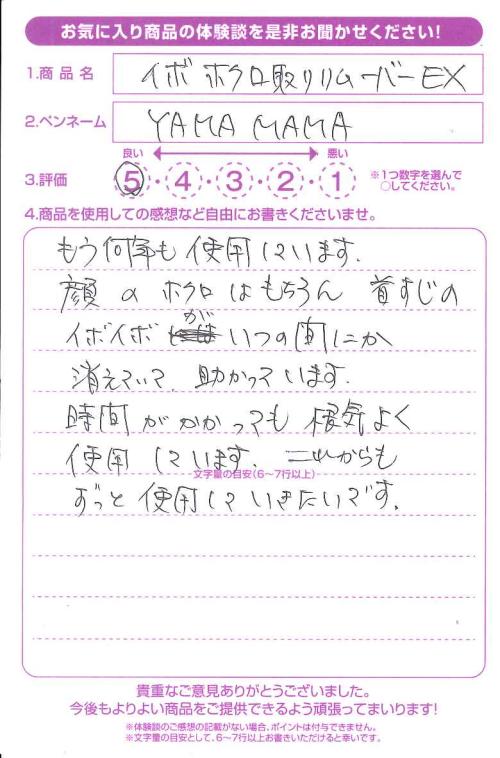 お気に入り商品の体験談を是非お聞かせください!
1.商品名 イボ ホクロ取りリムーバーEX
2.ペンネーム YAMA MAMA
良い 悪い
3.評価 5・4・3・2・1 ※1つ数字を選んで
○してください。
4.商品を使用しての感想など自由にお書きくださいませ。
もう何年も使用しています。
顔のホクロはもちろん 首すじの
イボイボがいつの間にか
消えていて、助かっています。
時間がかかっても根気よく
使用しています。これからも
文字量の目安(6〜7行以上)
ずっと使用していきたいです。
貴重なご意見ありがとうございました。
今後もよりよい商品をご提供できるよう頑張ってまいります!
※体験談のご感想の記載がない場合、ポイントは付与できません。
※文字量の目安として、6〜7行以上お書きいただけると幸いです。